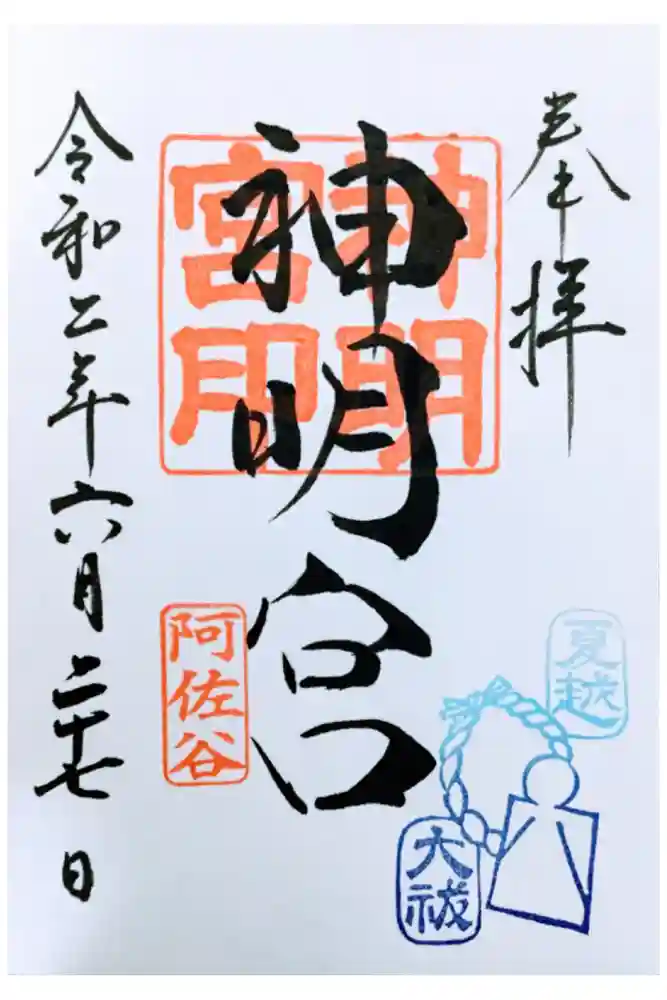 奉拝
神明宮
神明
宮印
阿佐谷
夏越
大祓
令和二年六月二十七日